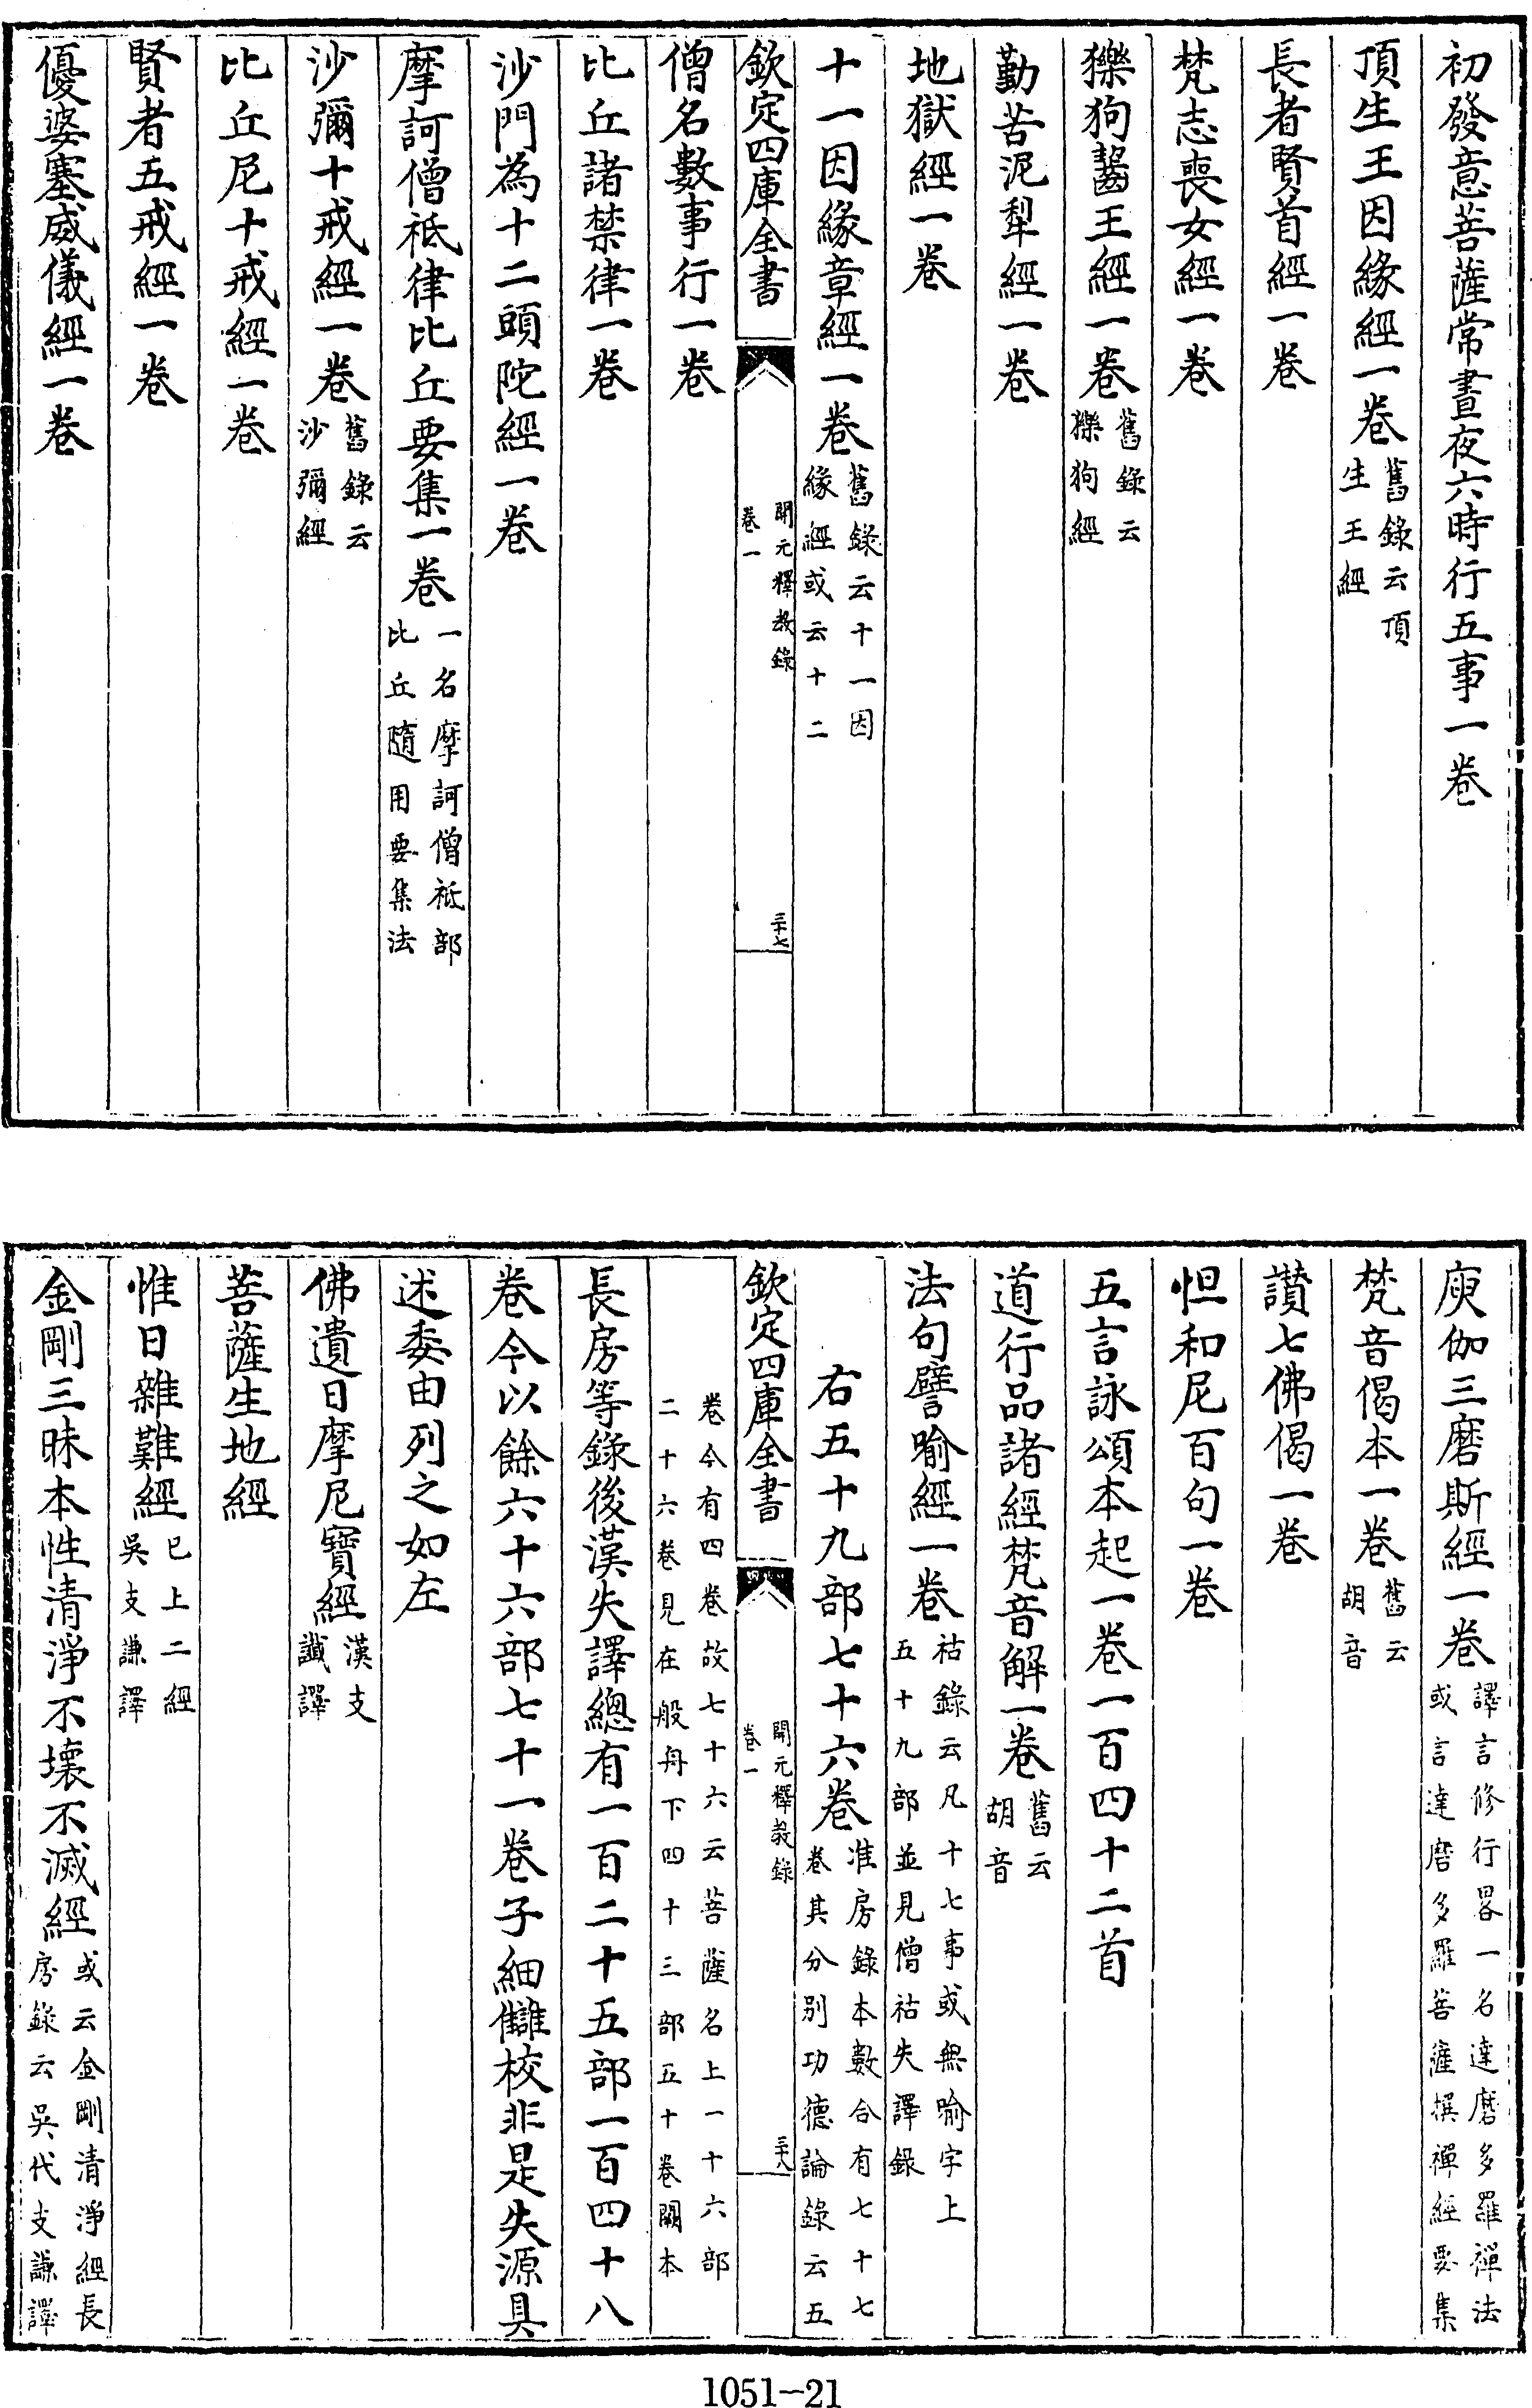 初發意菩薩常晝夜六時行五事一卷
頂生王因緣經一卷舊錄云頂生王經
長者賢首經一卷
梵志喪女經一卷
獠狗齧王經一卷舊錄云獠狗經
勤苦泥犁經一卷
地獄經一卷
十一因緣章經一卷舊錄云十一因緣經或云十二
欽定四庫全書 開元釋教錄卷一 三十七
僧名數事行一卷
比丘諸禁律一卷
沙門為十二頭陀經一卷
摩訶僧祇律比丘要集一卷一名摩訶僧祇部比丘隨用要集法
沙彌十戒經一卷舊錄云沙彌經
比丘尼十戒經一卷
賢者五戒經一卷
優婆塞威儀經一卷
庾伽三磨斯經一卷譯言修行畧一名達磨多羅禪法或言達磨多羅菩薩撰禪經要集
梵音偈本一卷舊云胡音
讚七佛偈一卷
怛和尼百句一卷
五言詠頌本起一卷一百四十二首
道行品諸經梵音解一卷舊云胡音
法句譬喻經一卷祐錄云凡十七事或無喻字上五十九部並見僧祐失譯錄
右五十九部七十六卷准房錄本數合有七十七卷其分別功德論錄云五
欽定四庫全書 開元釋教錄卷一 三十八
卷今有四卷故七十六云菩薩名上一十六部二十六卷見在般舟下四十三部五十卷闕本
長房等錄後漢失譯總有一百二十五部一百四十八
卷今以餘六十六部七十一卷子細讎校非是失源具
述委由列之如左
佛遺日摩尼寶經漢支讖譯
菩薩生地經
惟日雜難經已上二經吳支謙譯
金剛三昧本性清淨不壞不滅經或云金剛清淨經長房錄云吳代支謙譯
1051-21